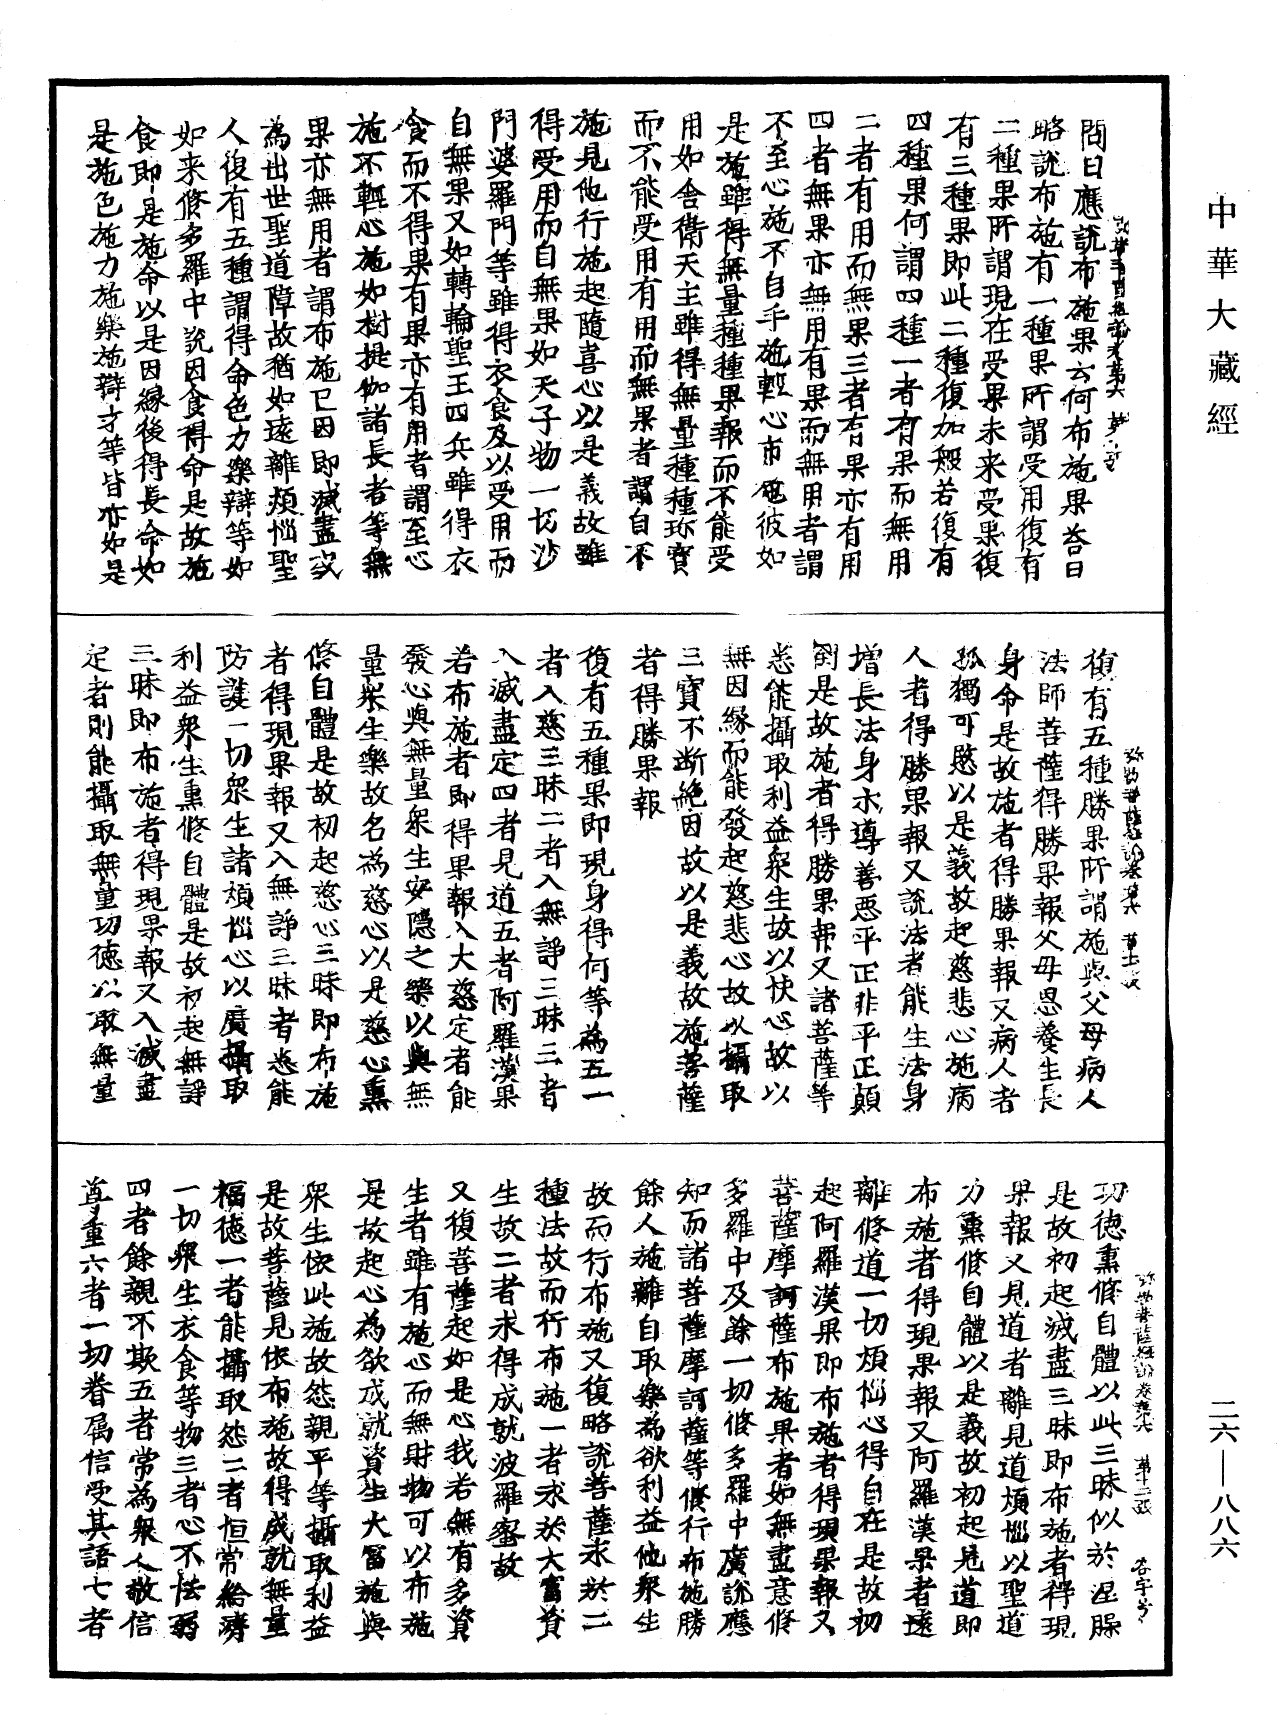 中華大藏經
二六—八八六
問曰應說布施果云何布施果荅曰
略說布施有一種果所謂受用復有
二種果所謂現在受果未来受果復
有三種果即此二種復加般若復有
四種果何謂四種一者有果而無用
二者有用而無果三者有果亦有用
四者無果亦無用有果而無用者謂
不至心施不自手施輕心市施彼如
是施雖得無量種種果報而不能受
用如舍衛天主雖得無量種種珎寶
而不能受用有用而無果者謂自不
施見他行施起隨喜心以是義故雖
得受用而自無果如天子物一切沙
門婆羅門等雖得衣食及以受用而
自無果又如轉輪聖王四兵雖得衣
食而不得果有果亦有用者謂至心
施不輕心施如樹提伽諸長者等無
果亦無用者謂布施已因即滅盡或
為出世聖道障故猶如遠離煩惱聖
人復有五種謂得命色力樂辯等如
如来修多羅中說因食得命是故施
食即是施命以是因緣後得長命如
是施色施力施樂施辯才等皆亦如是
復有五種勝果所謂施與父母病人
法師菩薩得勝果報父母恩養生長
身命是故施者得勝果報又病人者
孤獨可愍以是義故起慈悲心施病
人者得勝果報又說法者能生法身
增長法身示導善惡平正非平正顛
倒是故施者得勝果報又諸菩薩等
悉能攝取利益衆生故以快心故以
無因緣而能發起慈悲心故以攝取
三寶不斷絕因故以是義故施菩薩
者得勝果報
復有五種果即現身得何等為五一
者入慈三昧二者入無諍三昧三者
入滅盡定四者見道五者阿羅漢果
若布施者即得果報入大慈定者能
發心與無量衆生安隱之樂以與無
量衆生樂故名為慈心以是慈心熏
修自體是故初起慈心三昧即布施
者得現果報又入無諍三昧者悉能
防護一切衆生諸煩惱心以廣攝取
利益衆生熏修自體是故初起無諍
三昧即布施者得現果報又入滅盡
定者則能攝取無量功德以取無量
功德熏修自體以此三昧似於涅槃
是故初起滅盡三昧即布施者得現
果報又見道者離見道煩惱以聖道
力熏修自體以是義故初起見道即
布施者得現果報又阿羅漢果者遠
離修道一切煩惱心得自在是故初
起阿羅漢果即布施者得現果報又
菩薩摩訶薩布施果者如無盡意修
多羅中及餘一切修多羅中廣說應
知而諸菩薩摩訶薩等修行布施勝
餘人施離自取樂為欲利益他衆生
故而行布施又復略說菩薩求於二
種法故而行布施一者求於大富資
生故二者求得成就波羅蜜故
又復菩薩起如是心我若無有多資
生者雖有施心而無財物可以布施
是故起心為欲成就資生大富施與
衆生依此施故怨親平等攝取利益
是故菩薩見依布施故得成就無量
福德一者能攝取怨二者恒常給濟
一切衆生衣食等物三者心不怯弱
四者餘親不欺五者常為衆人敬信
尊重六者一切眷属信受其語七者